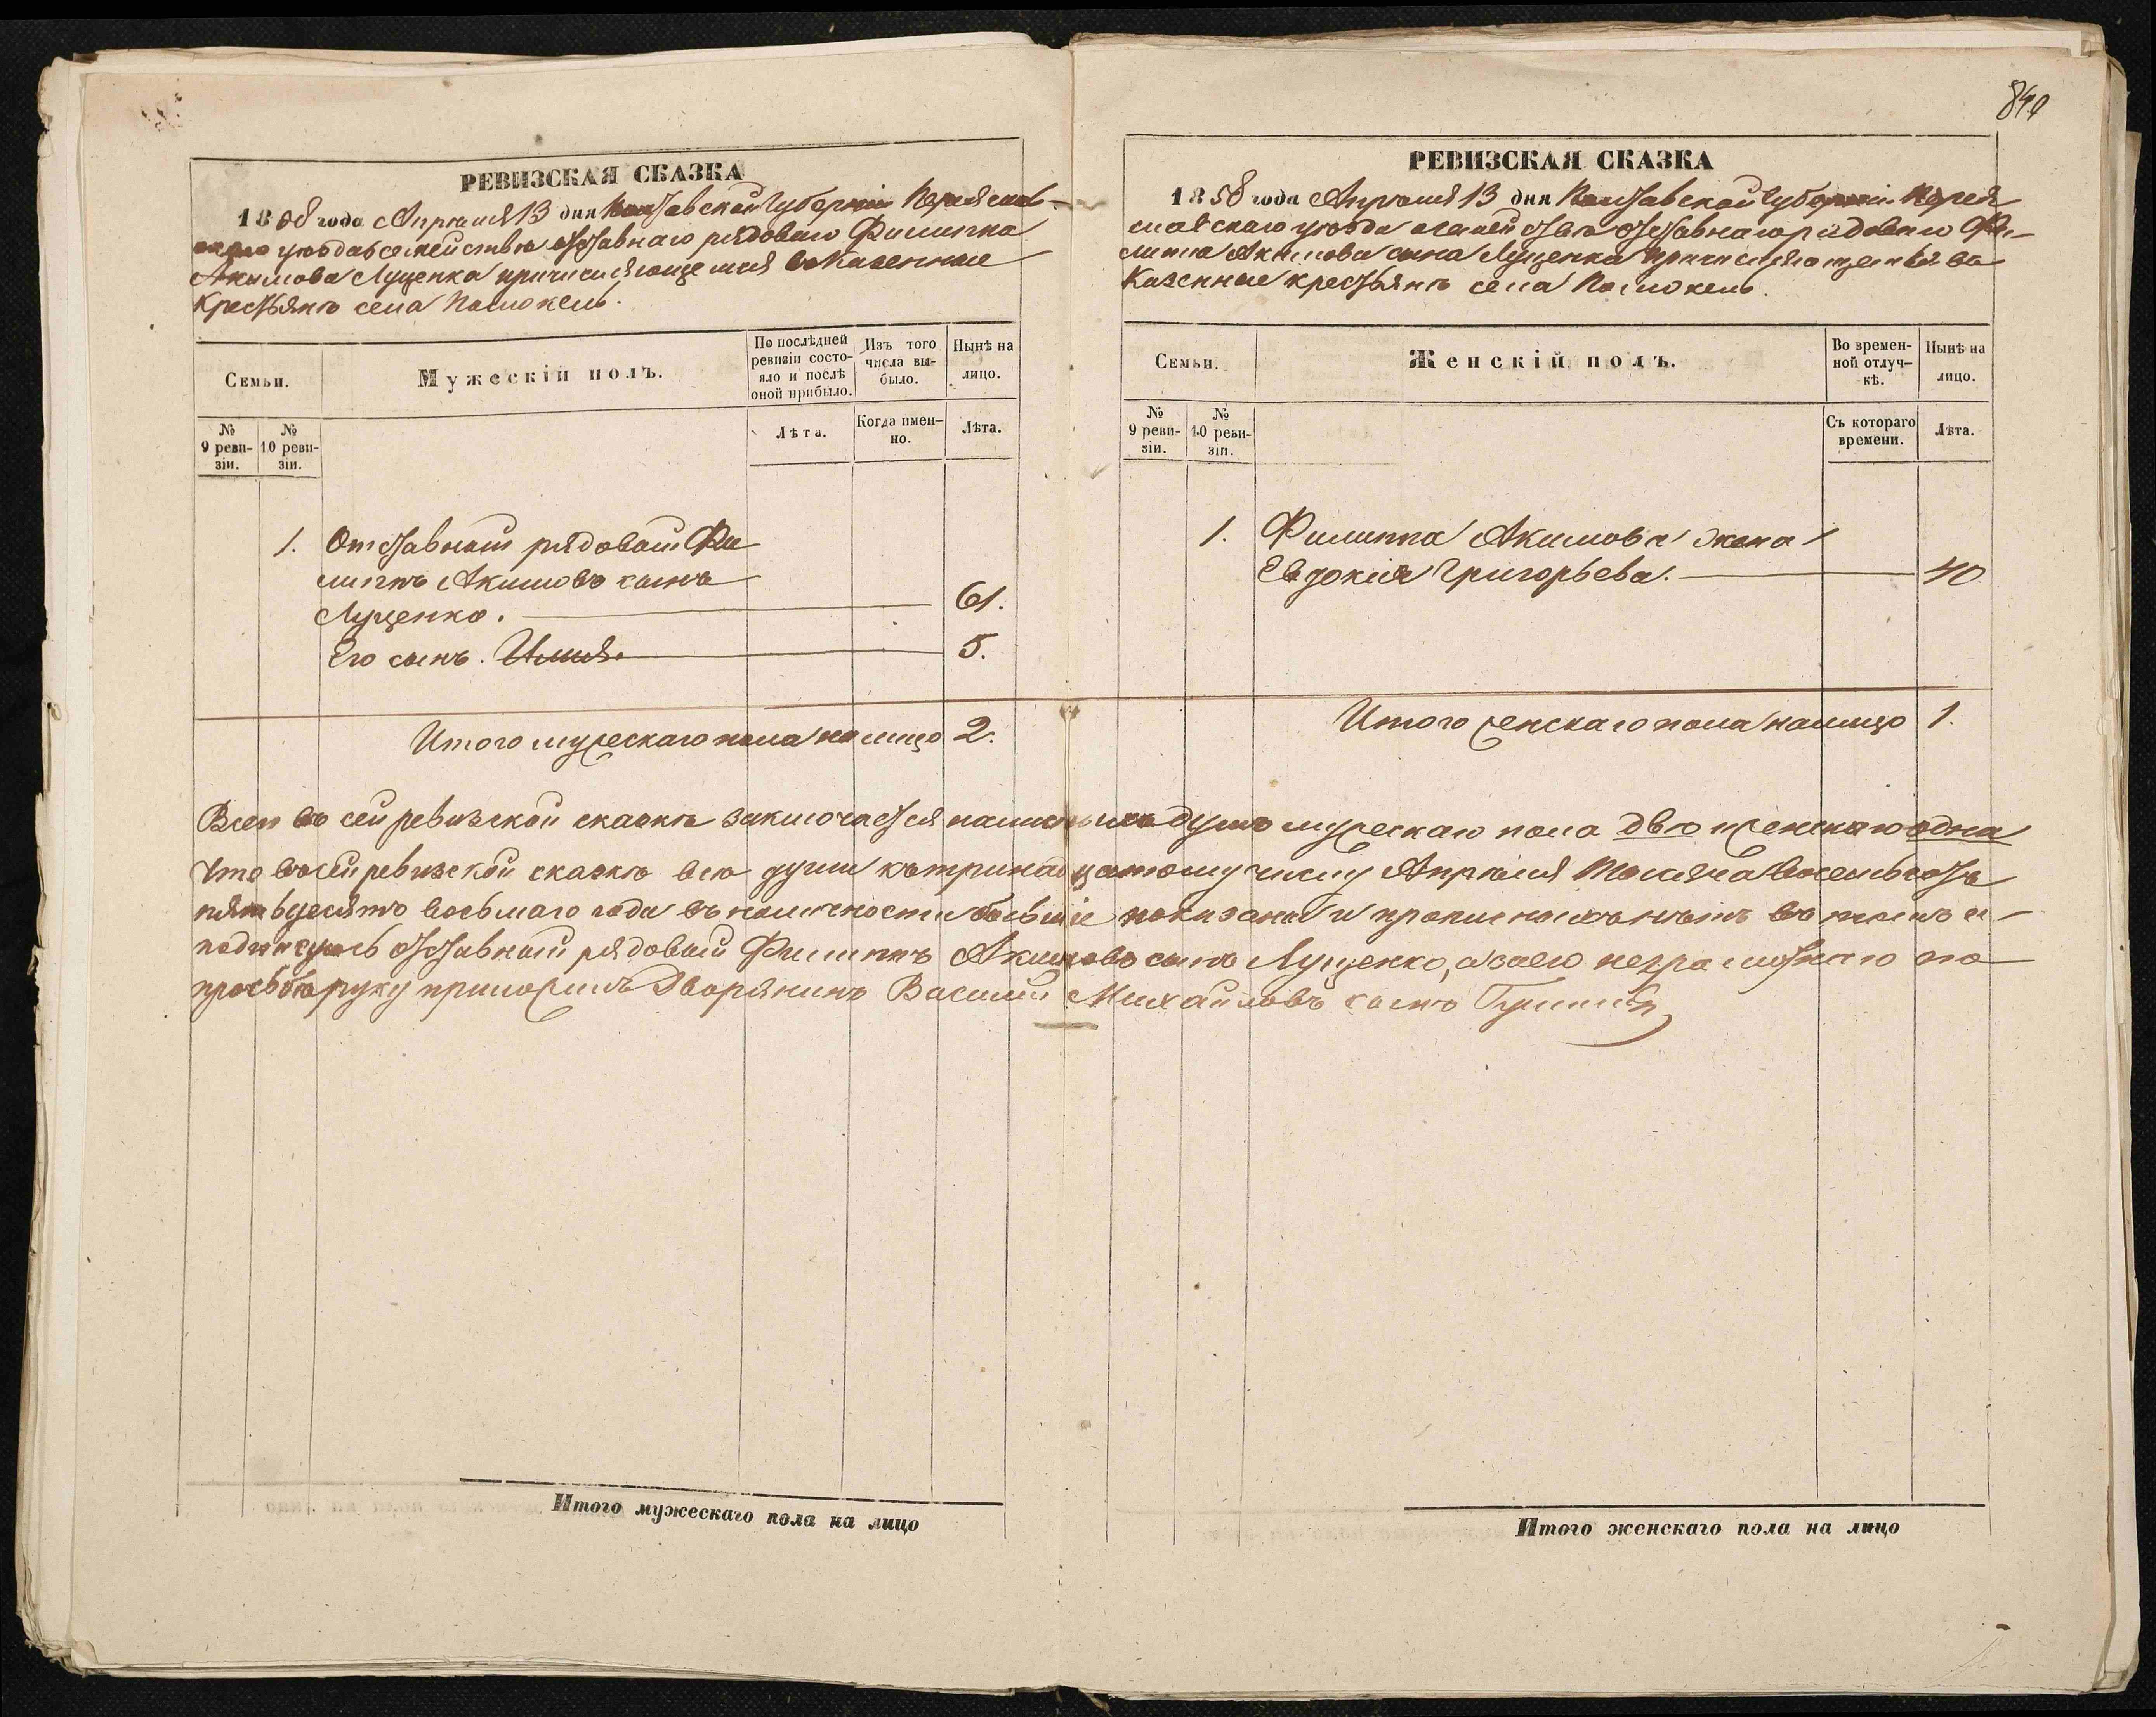 841
РЕВИЗСКАЯ СКАЗКА
1858 года Апреля 13 дня Полтавской Губерніи Переяслав-
скаго уѣзда о семействѣ отставнаго рядоваго Филиппа
Акимова Луценка причисляющемся въ Казенные
Крестьянѣ села
Семьи.
Мужескій полъ.
По послѣдней ревизіи состояло и послѣ оной прибыло.
Изъ того числа выбыло.
Нынѣ на лицо.
№ 9 ревизіи.
№ 10 ревизіи.
Лѣта.
Когда именно.
Лѣта.
1. Отставный рядовый Фи
липпъ Акимовъ сынъ
Луценко. 61.
Его сынъ. Илия. 5.
Итого мужескаго пола на лицо 2.
РЕВИЗСКАЯ СКАЗКА
1858 года Апреля 13 дня Полтавской Губерніи Перея
славскаго уѣзда о семействѣ отставнаго рядоваго Фи-
липпа Акимова сына Луценка причисляющемся въ
Казенные крестьянѣ села
Семьи.
Женскій полъ.
Во временной отлучкѣ.
Нынѣ на лицо.
№ 9 ревизіи.
№ 10 ревизіи.
Съ котораго времени.
Лѣта.
1. Филиппа Акимова жена
Евдокія Григорьева. 40
Итого женскаго пола налицо 1.
Всего въ сей ревизской сказкѣ заключается наличныхъ душъ мужескаго пола двѣ женскаго одна
Что въ сей ревизской сказкѣ всѣ души къ тринадцатому числу Апрѣля Тысяча восемьсотъ
пятьдесятъ восьмаго года въ наличности бывшіе показаны и прописныхъ нѣтъ въ томъ и
подписуюсь отставный рядовый Филиппъ Акимовъ сынъ Луценко, а за его неграмотнаго по
прозьбѣ руку приложилъ Дворянинъ Василий Михайловъ сынъ
Итого мужескаго пола на лицо
Итого женскаго пола на лицо